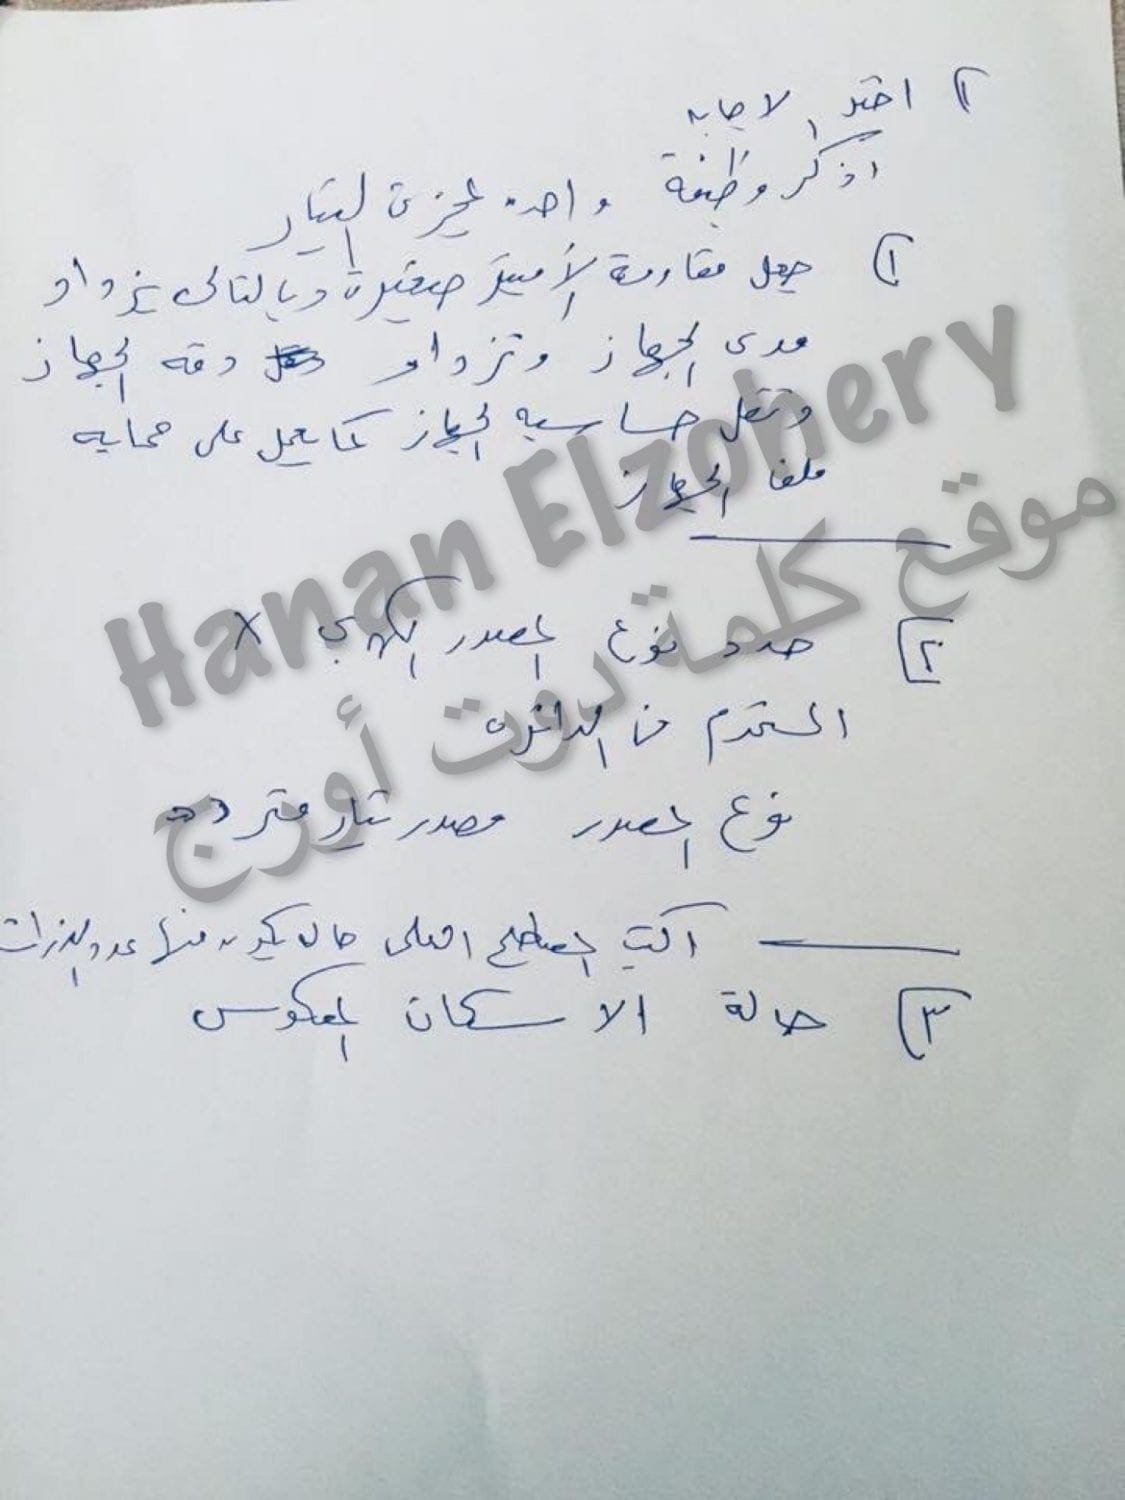 ١) اختر الاجابه
اذكر وظيفة واحده لمجزئ التيار
١) جعل مقاومة الأميتر صغيرة وبالتالى يزداد
مدى الجهاز وتزداد دقه الجهاز
وتقل حساسيه الجهاز كما يعمل على حمايه
ملف الجهاز
٢] حدد نوع المصدر الكهربي X
المستخدم فى الدائره
نوع المصدر مصدر تيار متردد
اكتب المصطلح العلمى حاله يكون فيها عدد الذرات
٣] حالة الاسكان المعكوس
Hanan Elzohery
موقع كلمة دوت أورج